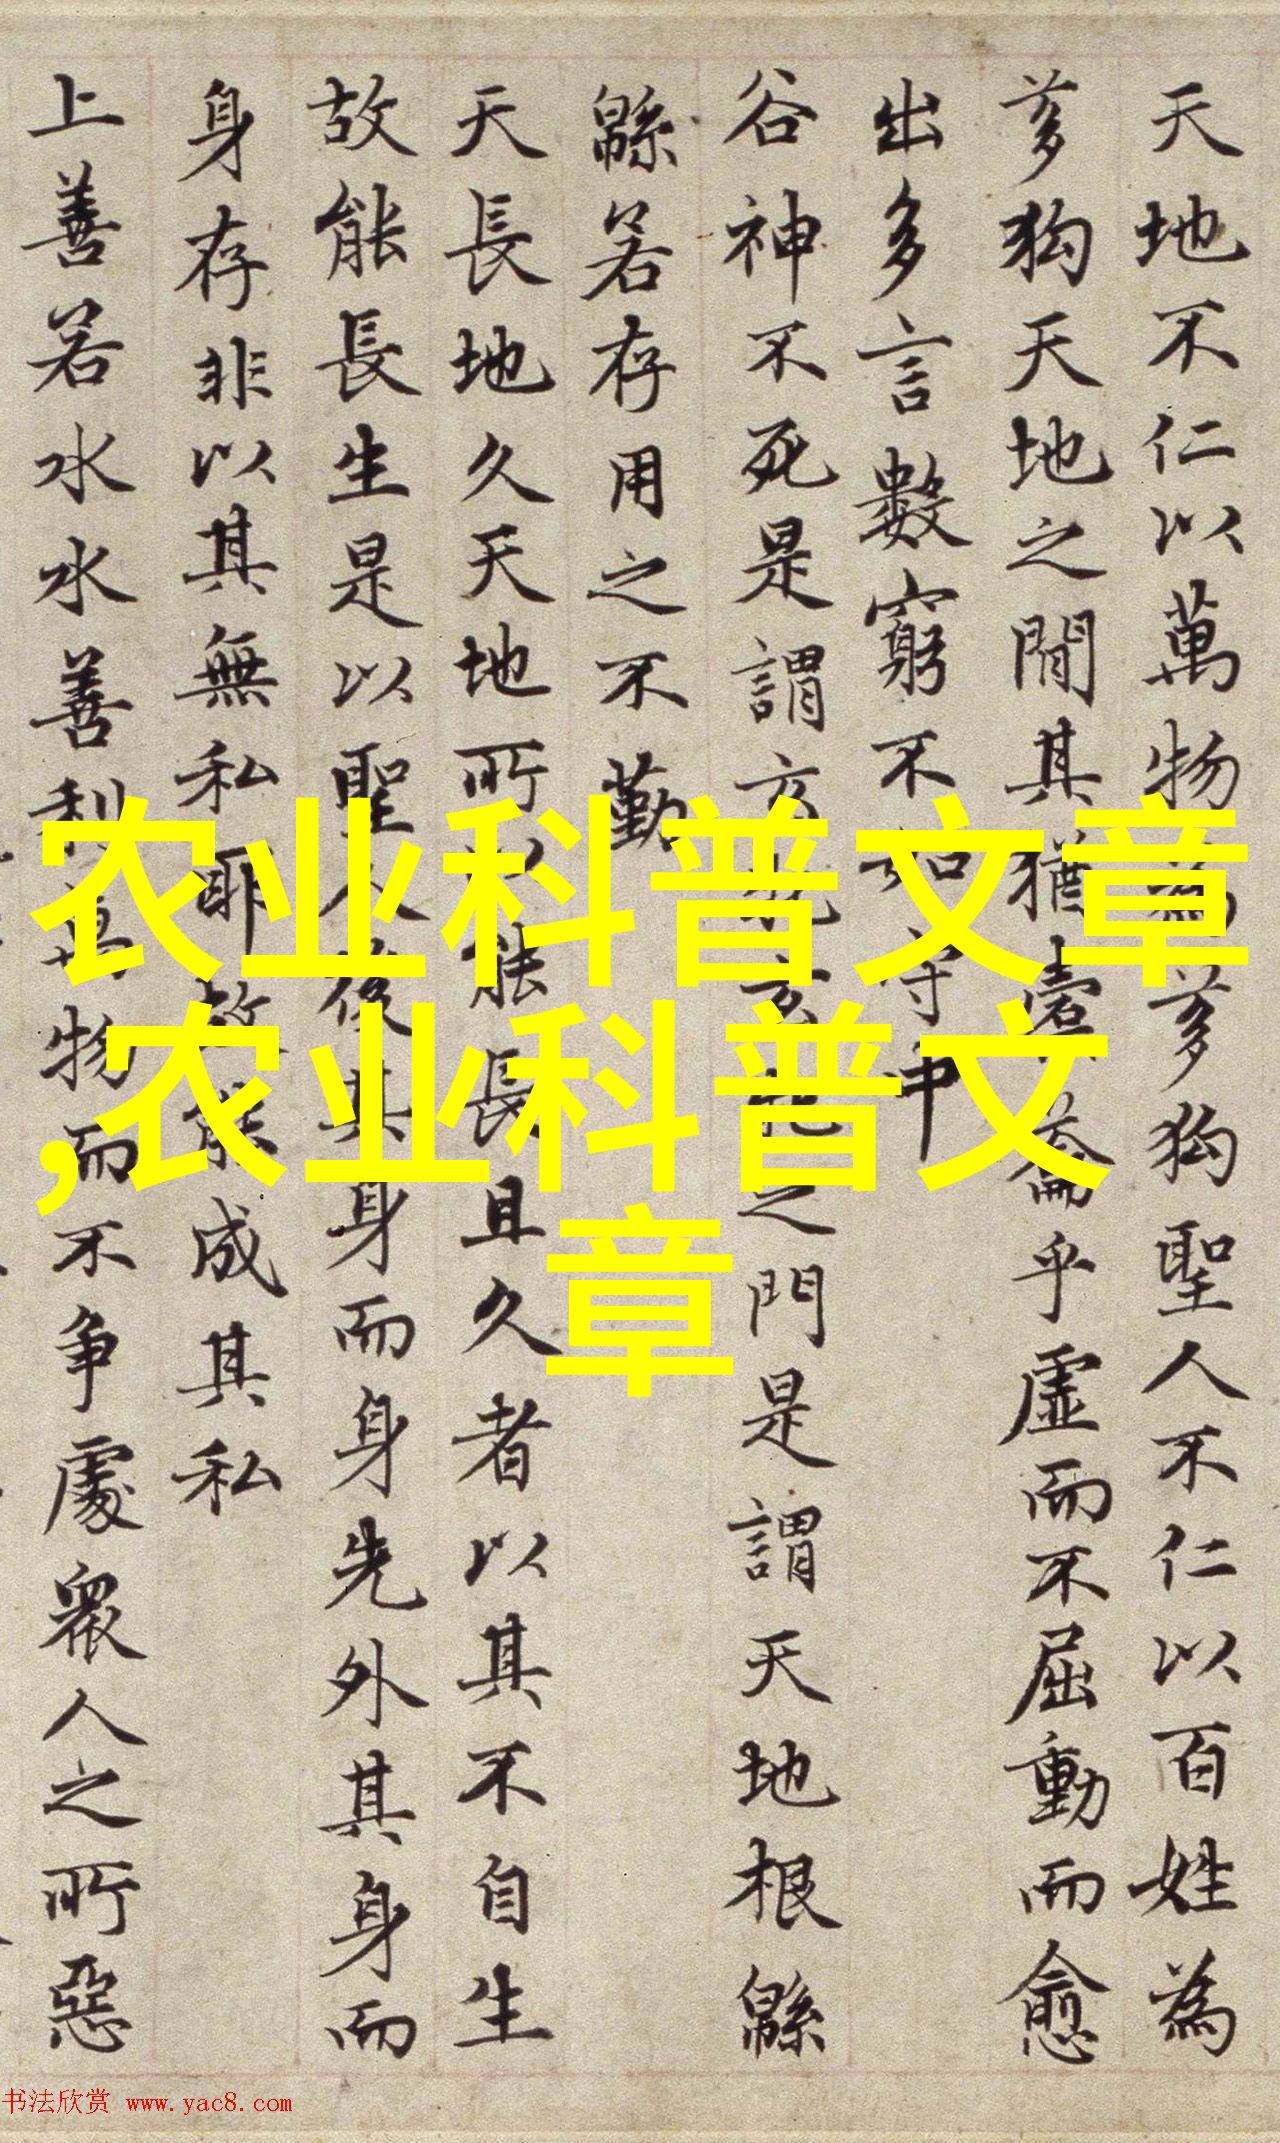 天地不仁以萬物為芻狗聖人不仁以百姓為
芻狗天地之間其猶橐籥乎虛而不屈動而愈
出多言數窮不如守中
谷神不死是謂玄牝玄牝之門是謂天地根緜
緜若存用之不勤
天長地久天地所以能長且久者以其不自生
故能長生是以聖人後其身而身先外其身而
身存非以其無私耶故能成其私
上善若水水善利萬物而不爭處衆人之所惡
农业科普文章
,农业科普文
章
书法欣赏 www.yac8.com